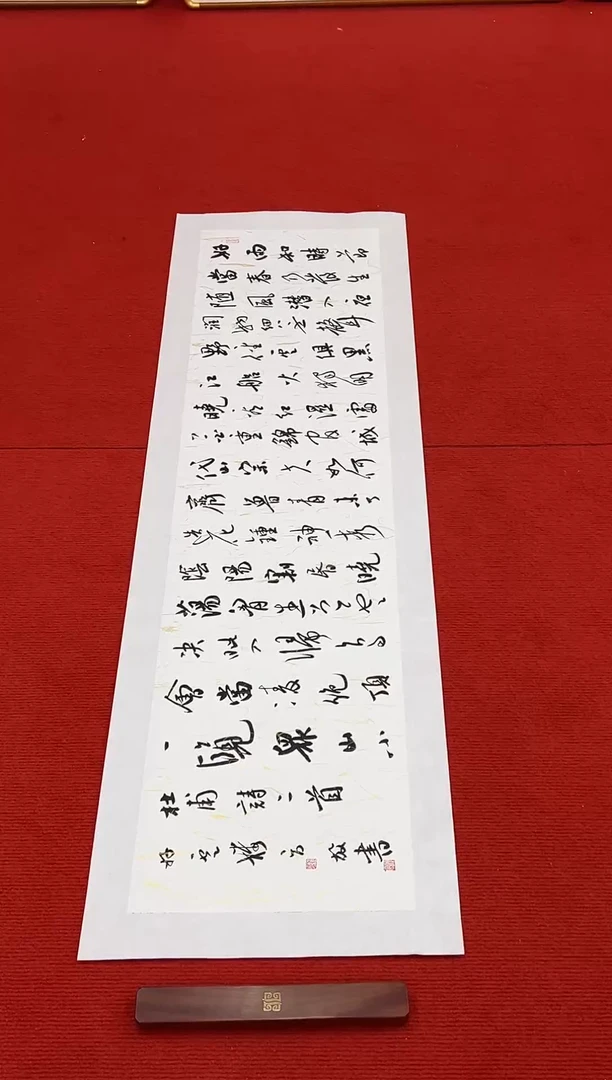 好雨知時節
當春乃發生
隨風潛入夜
潤物細無聲
野徑雲俱黑
江船火獨明
曉看紅濕處
花重錦官城
岱宗夫如何
齊魯青未了
造化鍾神秀
陰陽割昏曉
蕩胸生層雲
決眥入歸鳥
會當凌絕頂
一覽眾山小
杜甫詩二首
書